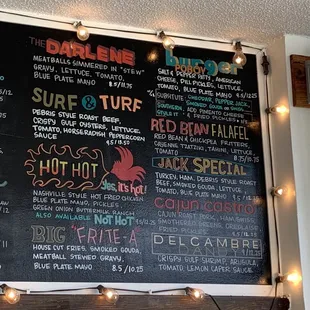 THE DARLENE
MEATBALLS SIMMERED IN "STEW"
GRAVY, LETTUCE, TOMATO,
BLUE PLATE MAYO 8.5/10.75
SURF & TURF
DEBRIS STYLE ROAST BEEF,
CRISPY GULF OYSTERS, LETTUCE,
TOMATO, HORSERADISH PEPPERCORN
HOT HOT
Yes, it's hot!
NASHVILLE STYLE HOT FRIED CHICKEN
BLUE PLATE MAYO, PICKLES,
GREEN ONION BUTTERMILK RANCH
ALSO AVAILABLE NOT HOT
BIG "FRITE-A
HOUSE CUT FRIES, SMOKED GOUDA
MEATBALLS STEWED GRAVY,
BLUE PLATE MAYO 8.5/10.25
burger
POBOY
SALT & PEPPER PATTY, AMERICAN
CHEESE, DILL PICKLES, TOMATO,
BLUE PLATE MAYO
SUBSTITUTE: CHEDDAR, PEPPER JACK,
SMOKED GOUDA OR SWISS
STYLE IT
RED BEAN FALAFEL
RED BEAN & CHICKPEA FRITTERS,
LETTUCE,
TOMATO
JACK SPECIAL
TURKEY, HAM, DEBRIS STYLE ROAST
BEEF, SMOKED GOUDA, LETTUCE,
TOMATO, BLUE PLATE MAYO
cajun castro
CAJUN ROAST PORK, HAM,
DELCAMBRE
CRISPY GULF SHRIMP, ARUGULA,
TOMATO, LEMON CAPER SAUCE